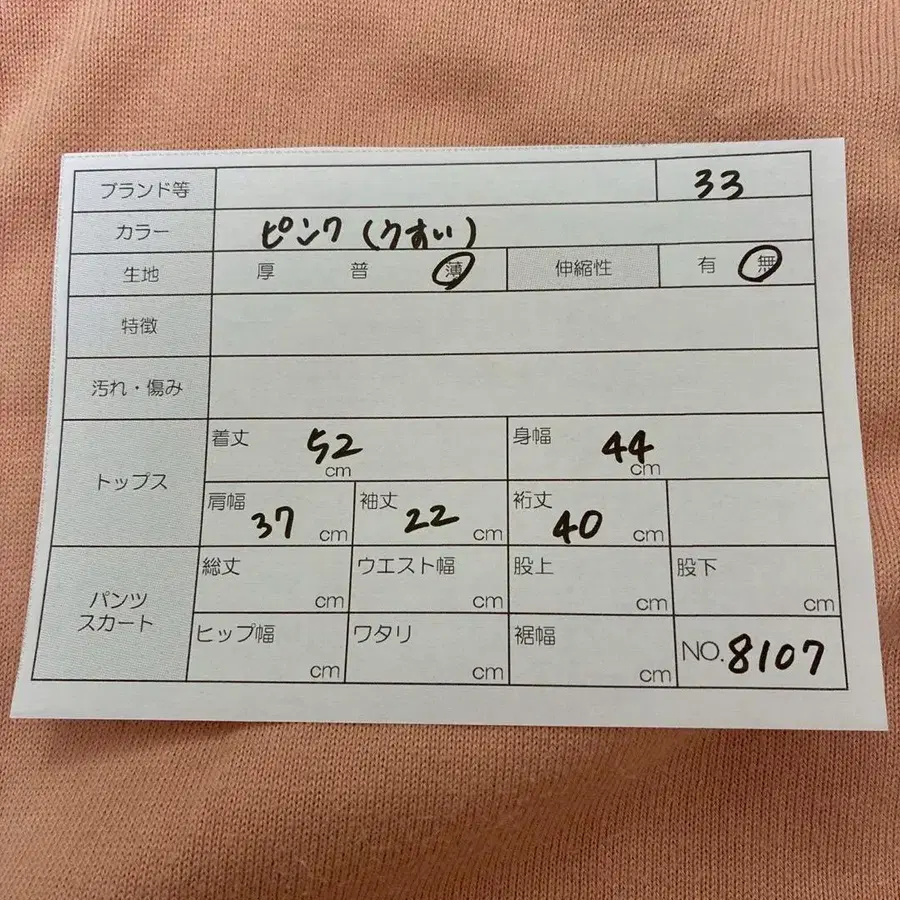 ブランド等 33
カラー ピンク(うすい)
生地 厚 普 薄 伸縮性 有 無
特徴
汚れ・傷み
トップス
着丈 52 cm 身幅 44 cm
肩幅 37 cm 袖丈 22 cm 裄丈 40 cm
パンツ
スカート
総丈 cm ウエスト幅 cm 股上 cm 股下 cm
ヒップ幅 cm ワタリ cm 裾幅 cm NO.8107